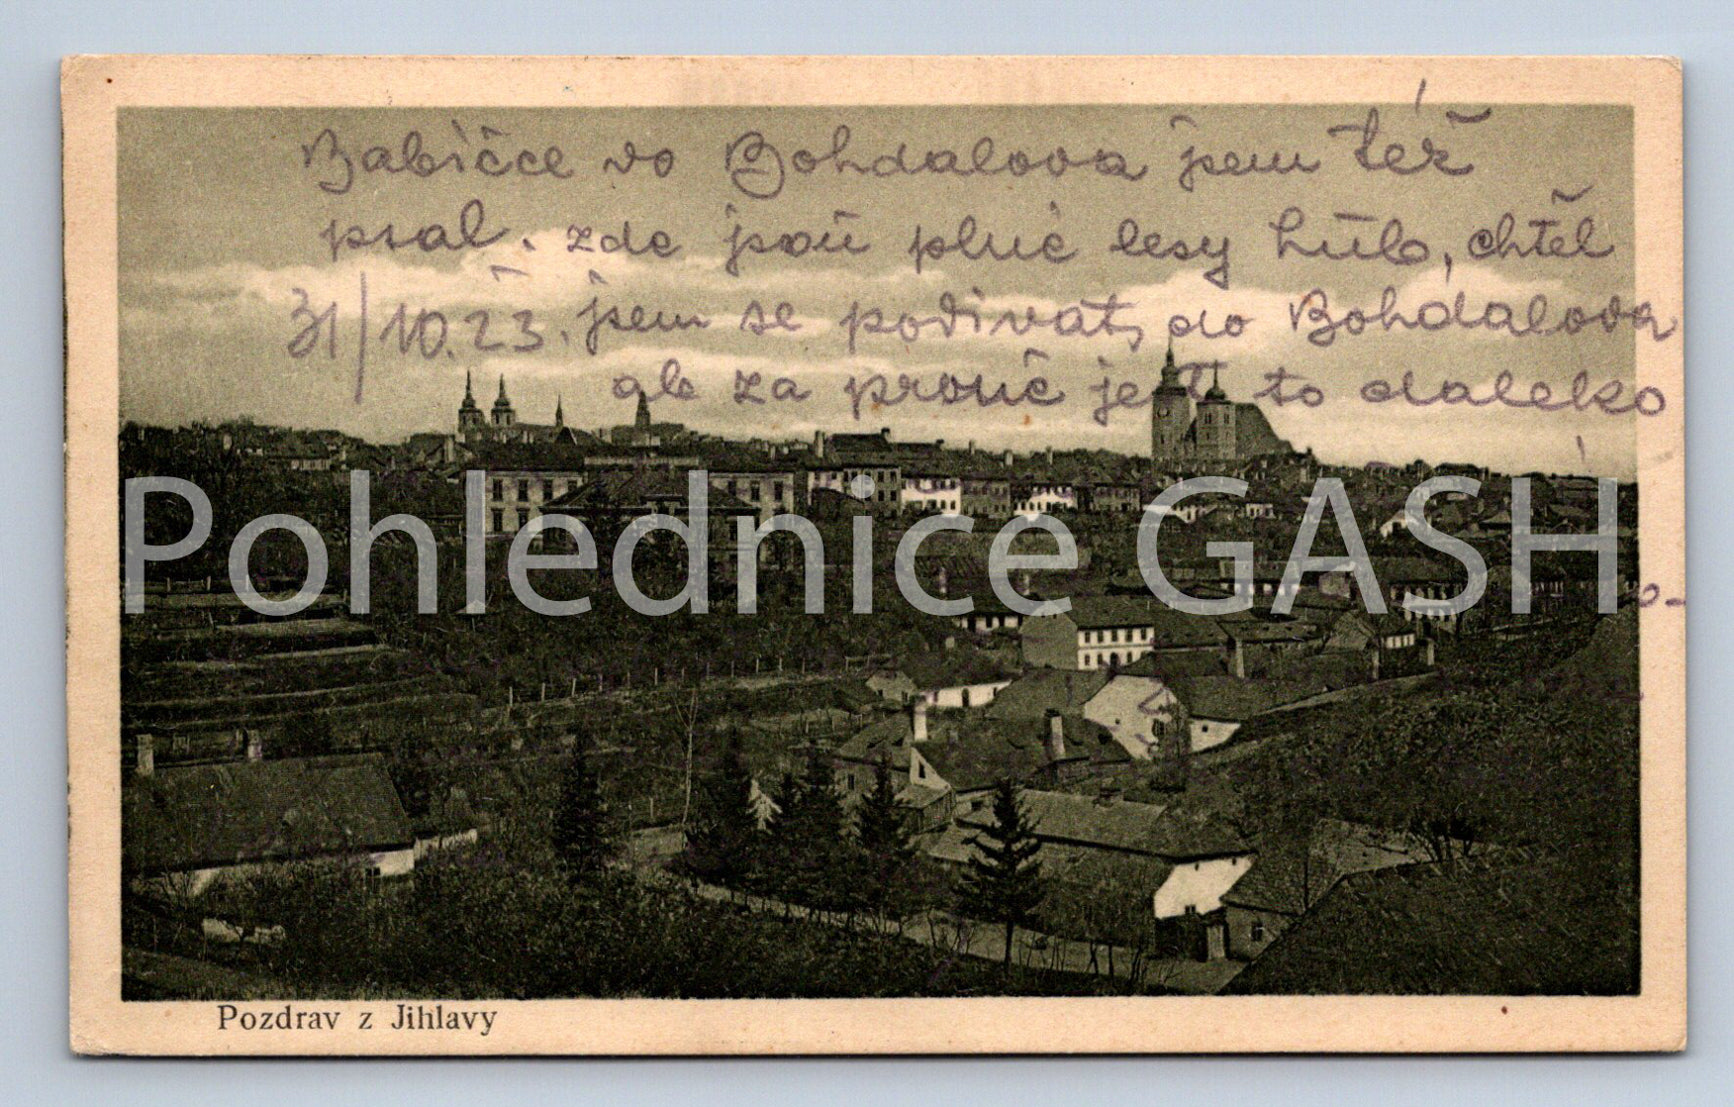 Babičce do Bohdalova jsem též
psal. zde jsou plné lesy hub, chtěl
31/10.23. jsem se podívat do Bohdalova
ale za prouč jest to daleko
Pohlednice GASH
Pozdrav z Jihlavy